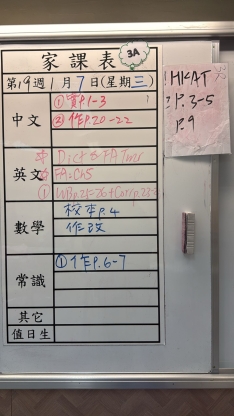 家課表
3A
第19週1月7日(星期三)
中文
① 實P.1-3
② 作P.20-22
英文
Dict 5
FA
① WB P.25-26 + Corr p.22
數學
校本P.4
作改
常識
① 作P.6-7
其它
值日生
HKAT
P.3-5
P.9